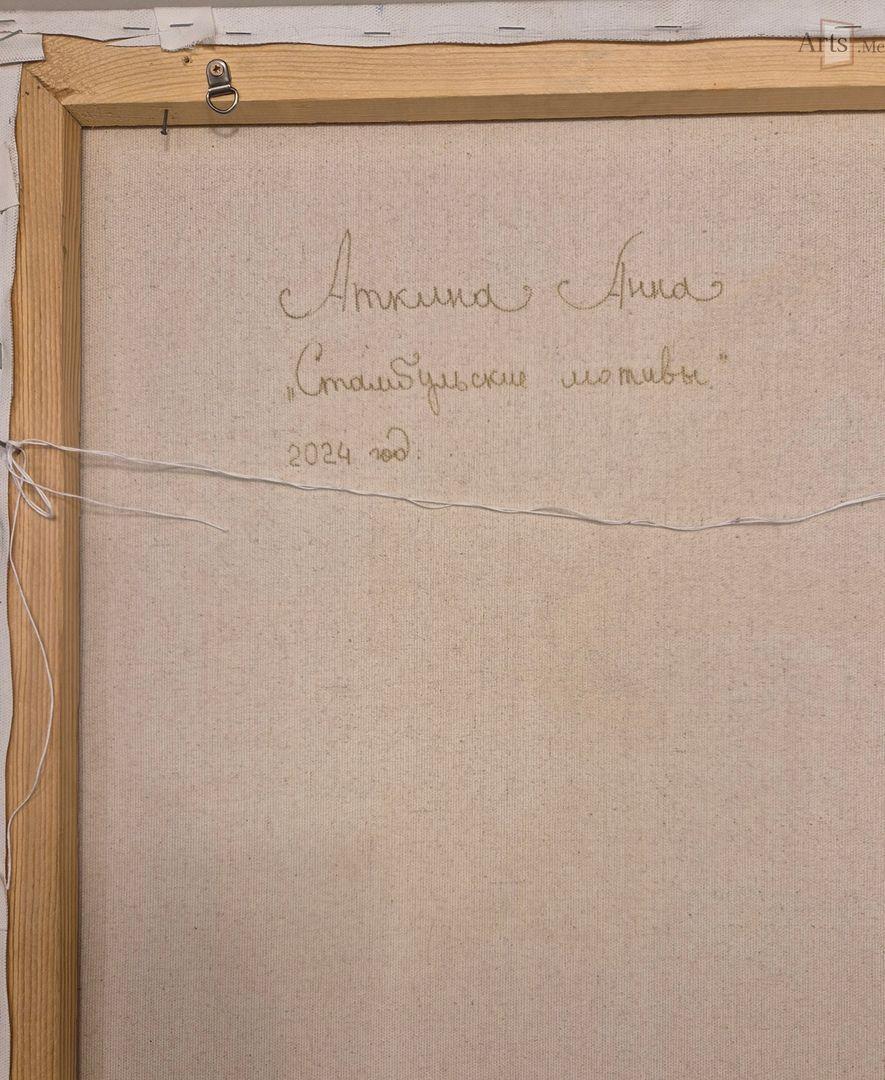 Arts .Me
Аткина Анна
„Стамбульские мотивы."
2024 год.